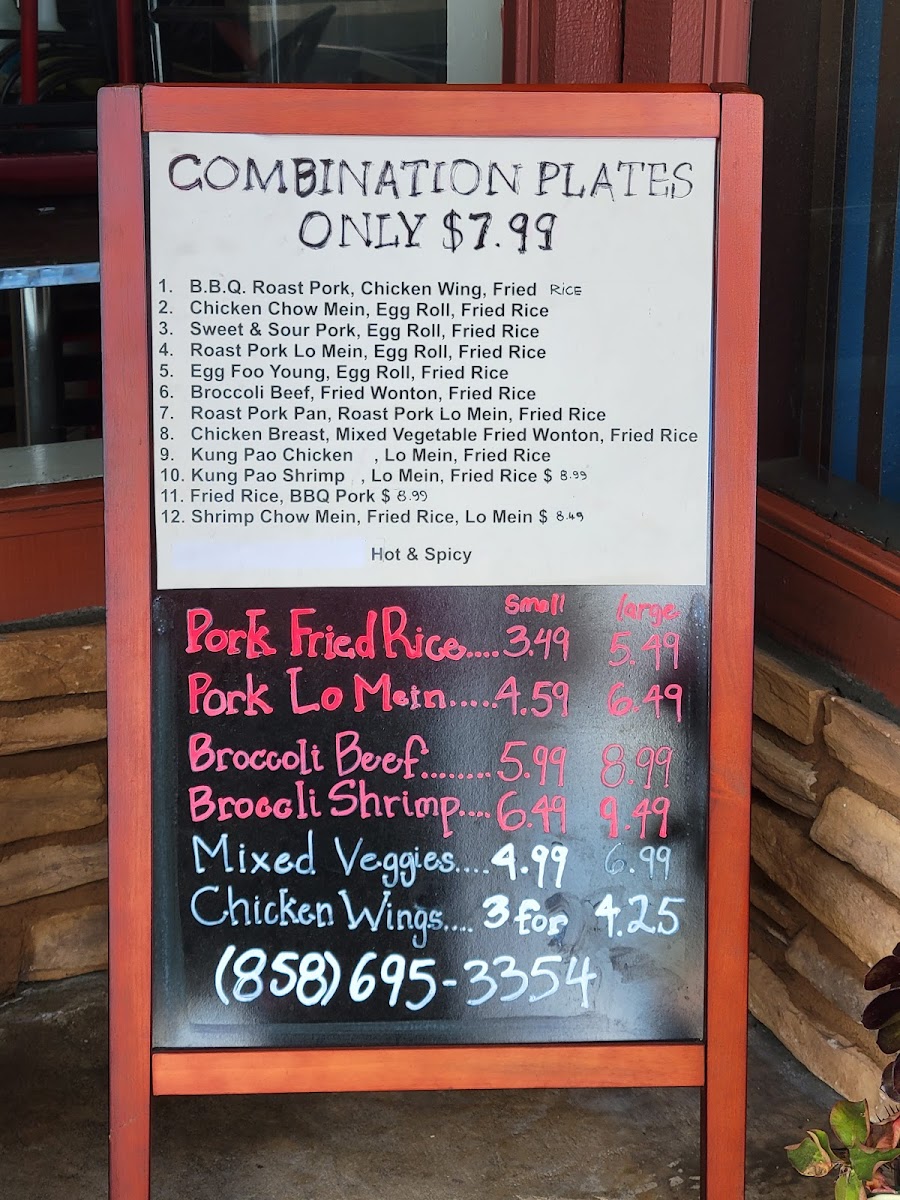 COMBINATION PLATES
ONLY $7.99
1. B.B.Q. Roast Pork, Chicken Wing, Fried RICE
2. Chicken Chow Mein, Egg Roll, Fried Rice
3. Sweet & Sour Pork, Egg Roll, Fried Rice
4. Roast Pork Lo Mein, Egg Roll, Fried Rice
5. Egg Foo Young, Egg Roll, Fried Rice
6. Broccoli Beef, Fried Wonton, Fried Rice
7. Roast Pork Pan, Roast Pork Lo Mein, Fried Rice
8. Chicken Breast, Mixed Vegetable Fried Wonton, Fried Rice
9. Kung Pao Chicken , Lo Mein, Fried Rice
10. Kung Pao Shrimp , Lo Mein, Fried Rice $ 8.99
11. Fried Rice, BBQ Pork $ 8.99
12. Shrimp Chow Mein, Fried Rice, Lo Mein $ 8.49
Hot & Spicy
Small large
Pork Fried Rice.....3.49 5.49
Pork Lo Mein.....4.59 6.49
Broccoli Beef........5.99 8.99
Broccli Shrimp....6.49 9.49
Mixed Veggies....4.99 6.99
Chicken Wings....3 for 4.25
(858)695-3354